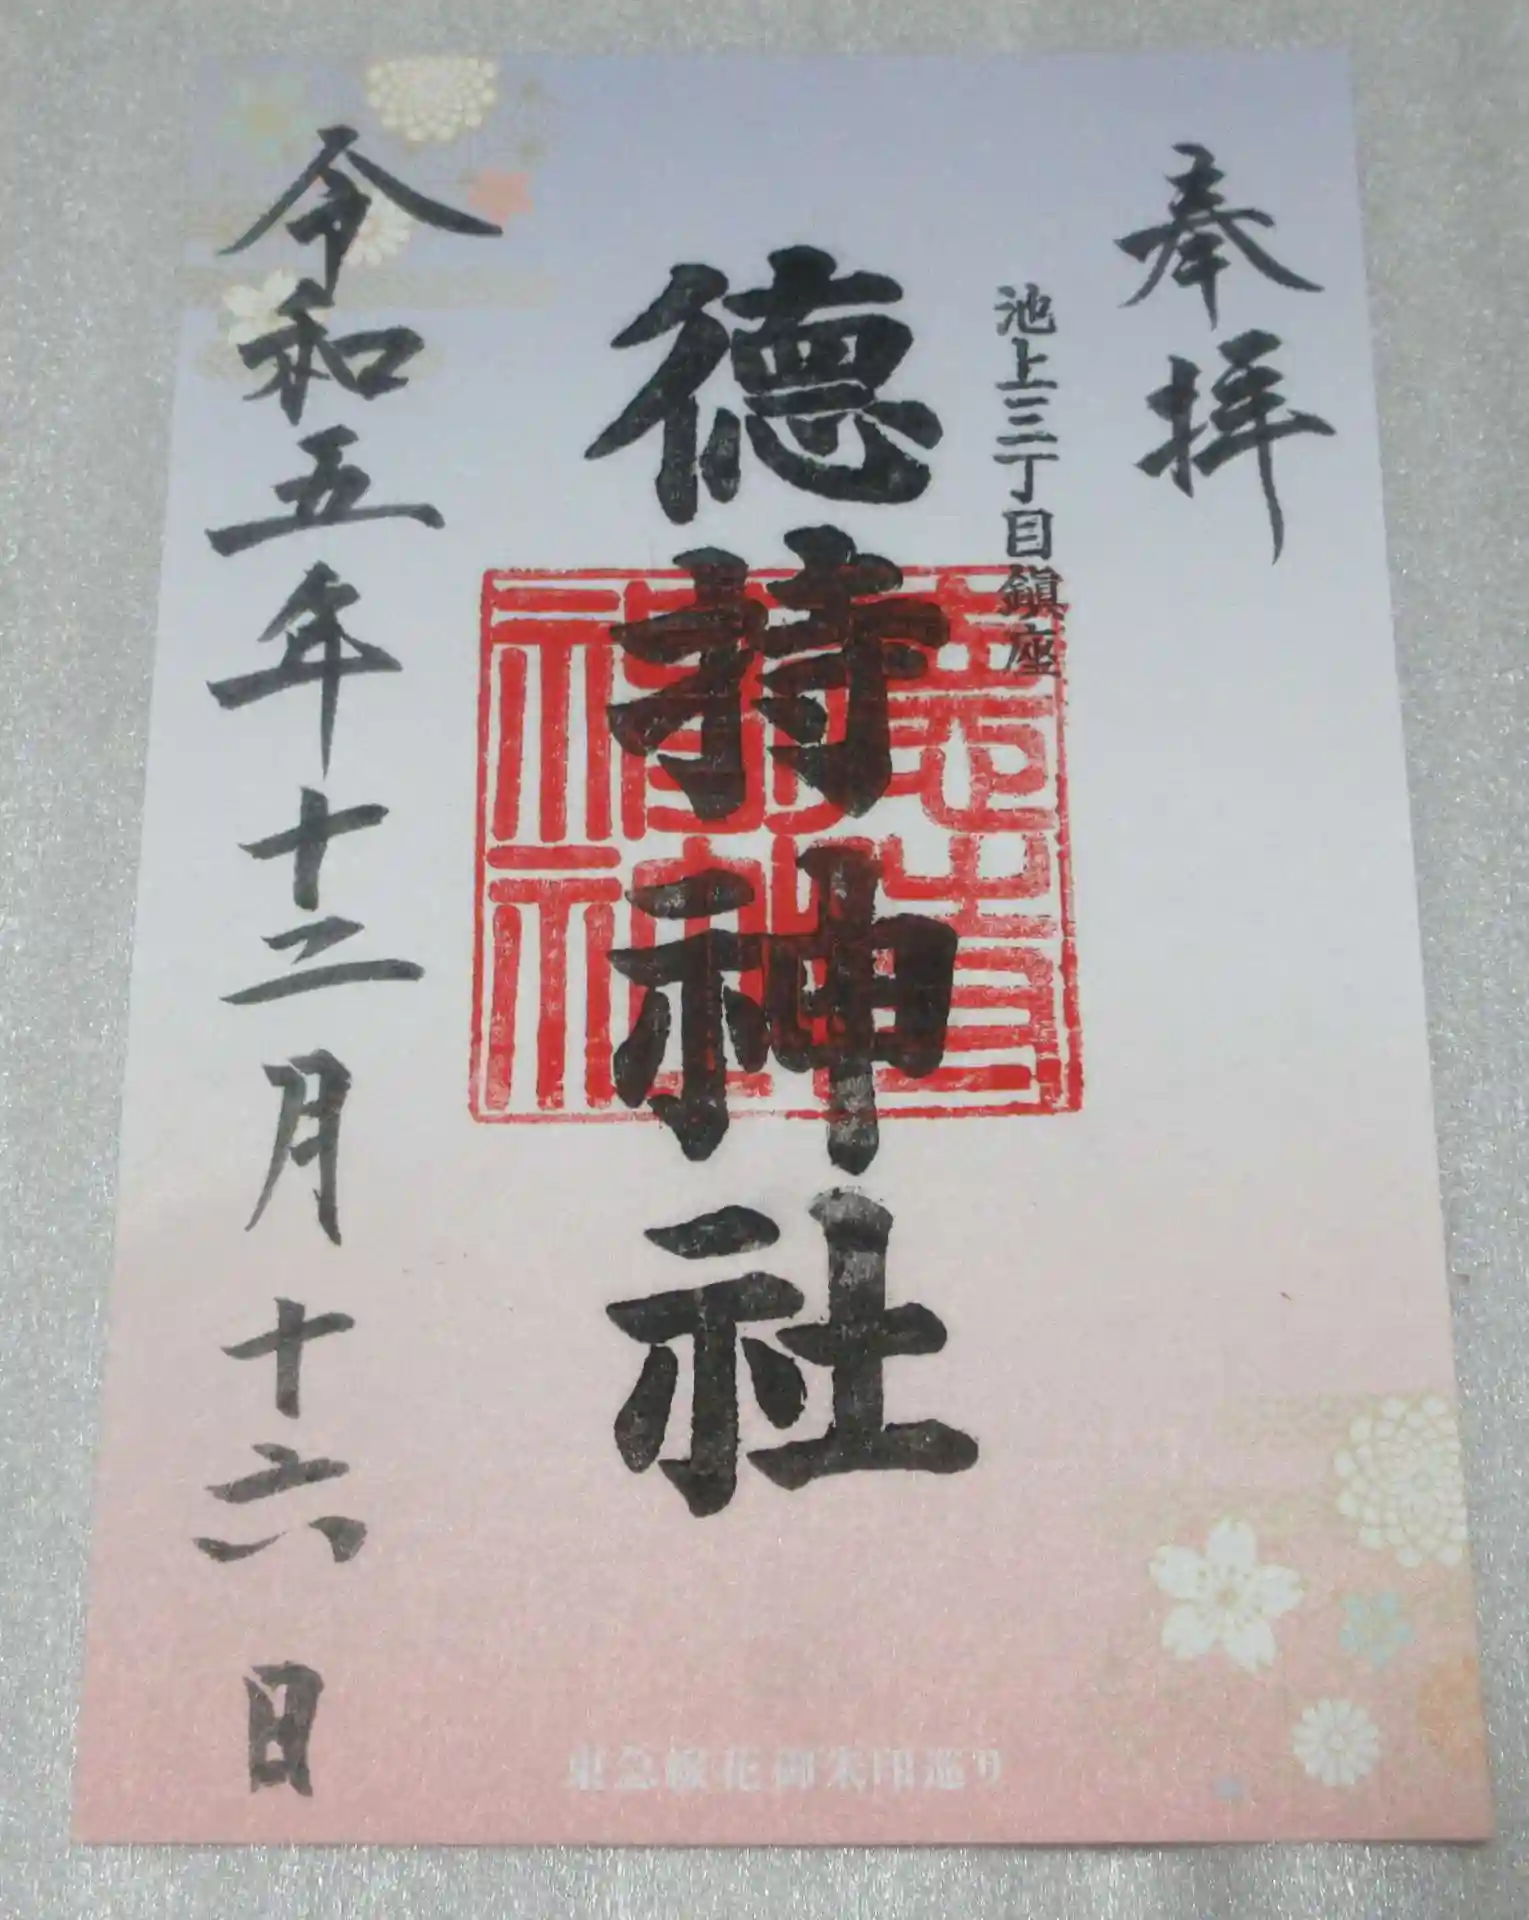 奉拝
池上三丁目鎮座
徳持神社
令和五年十二月十六日
東急線花御朱印巡り